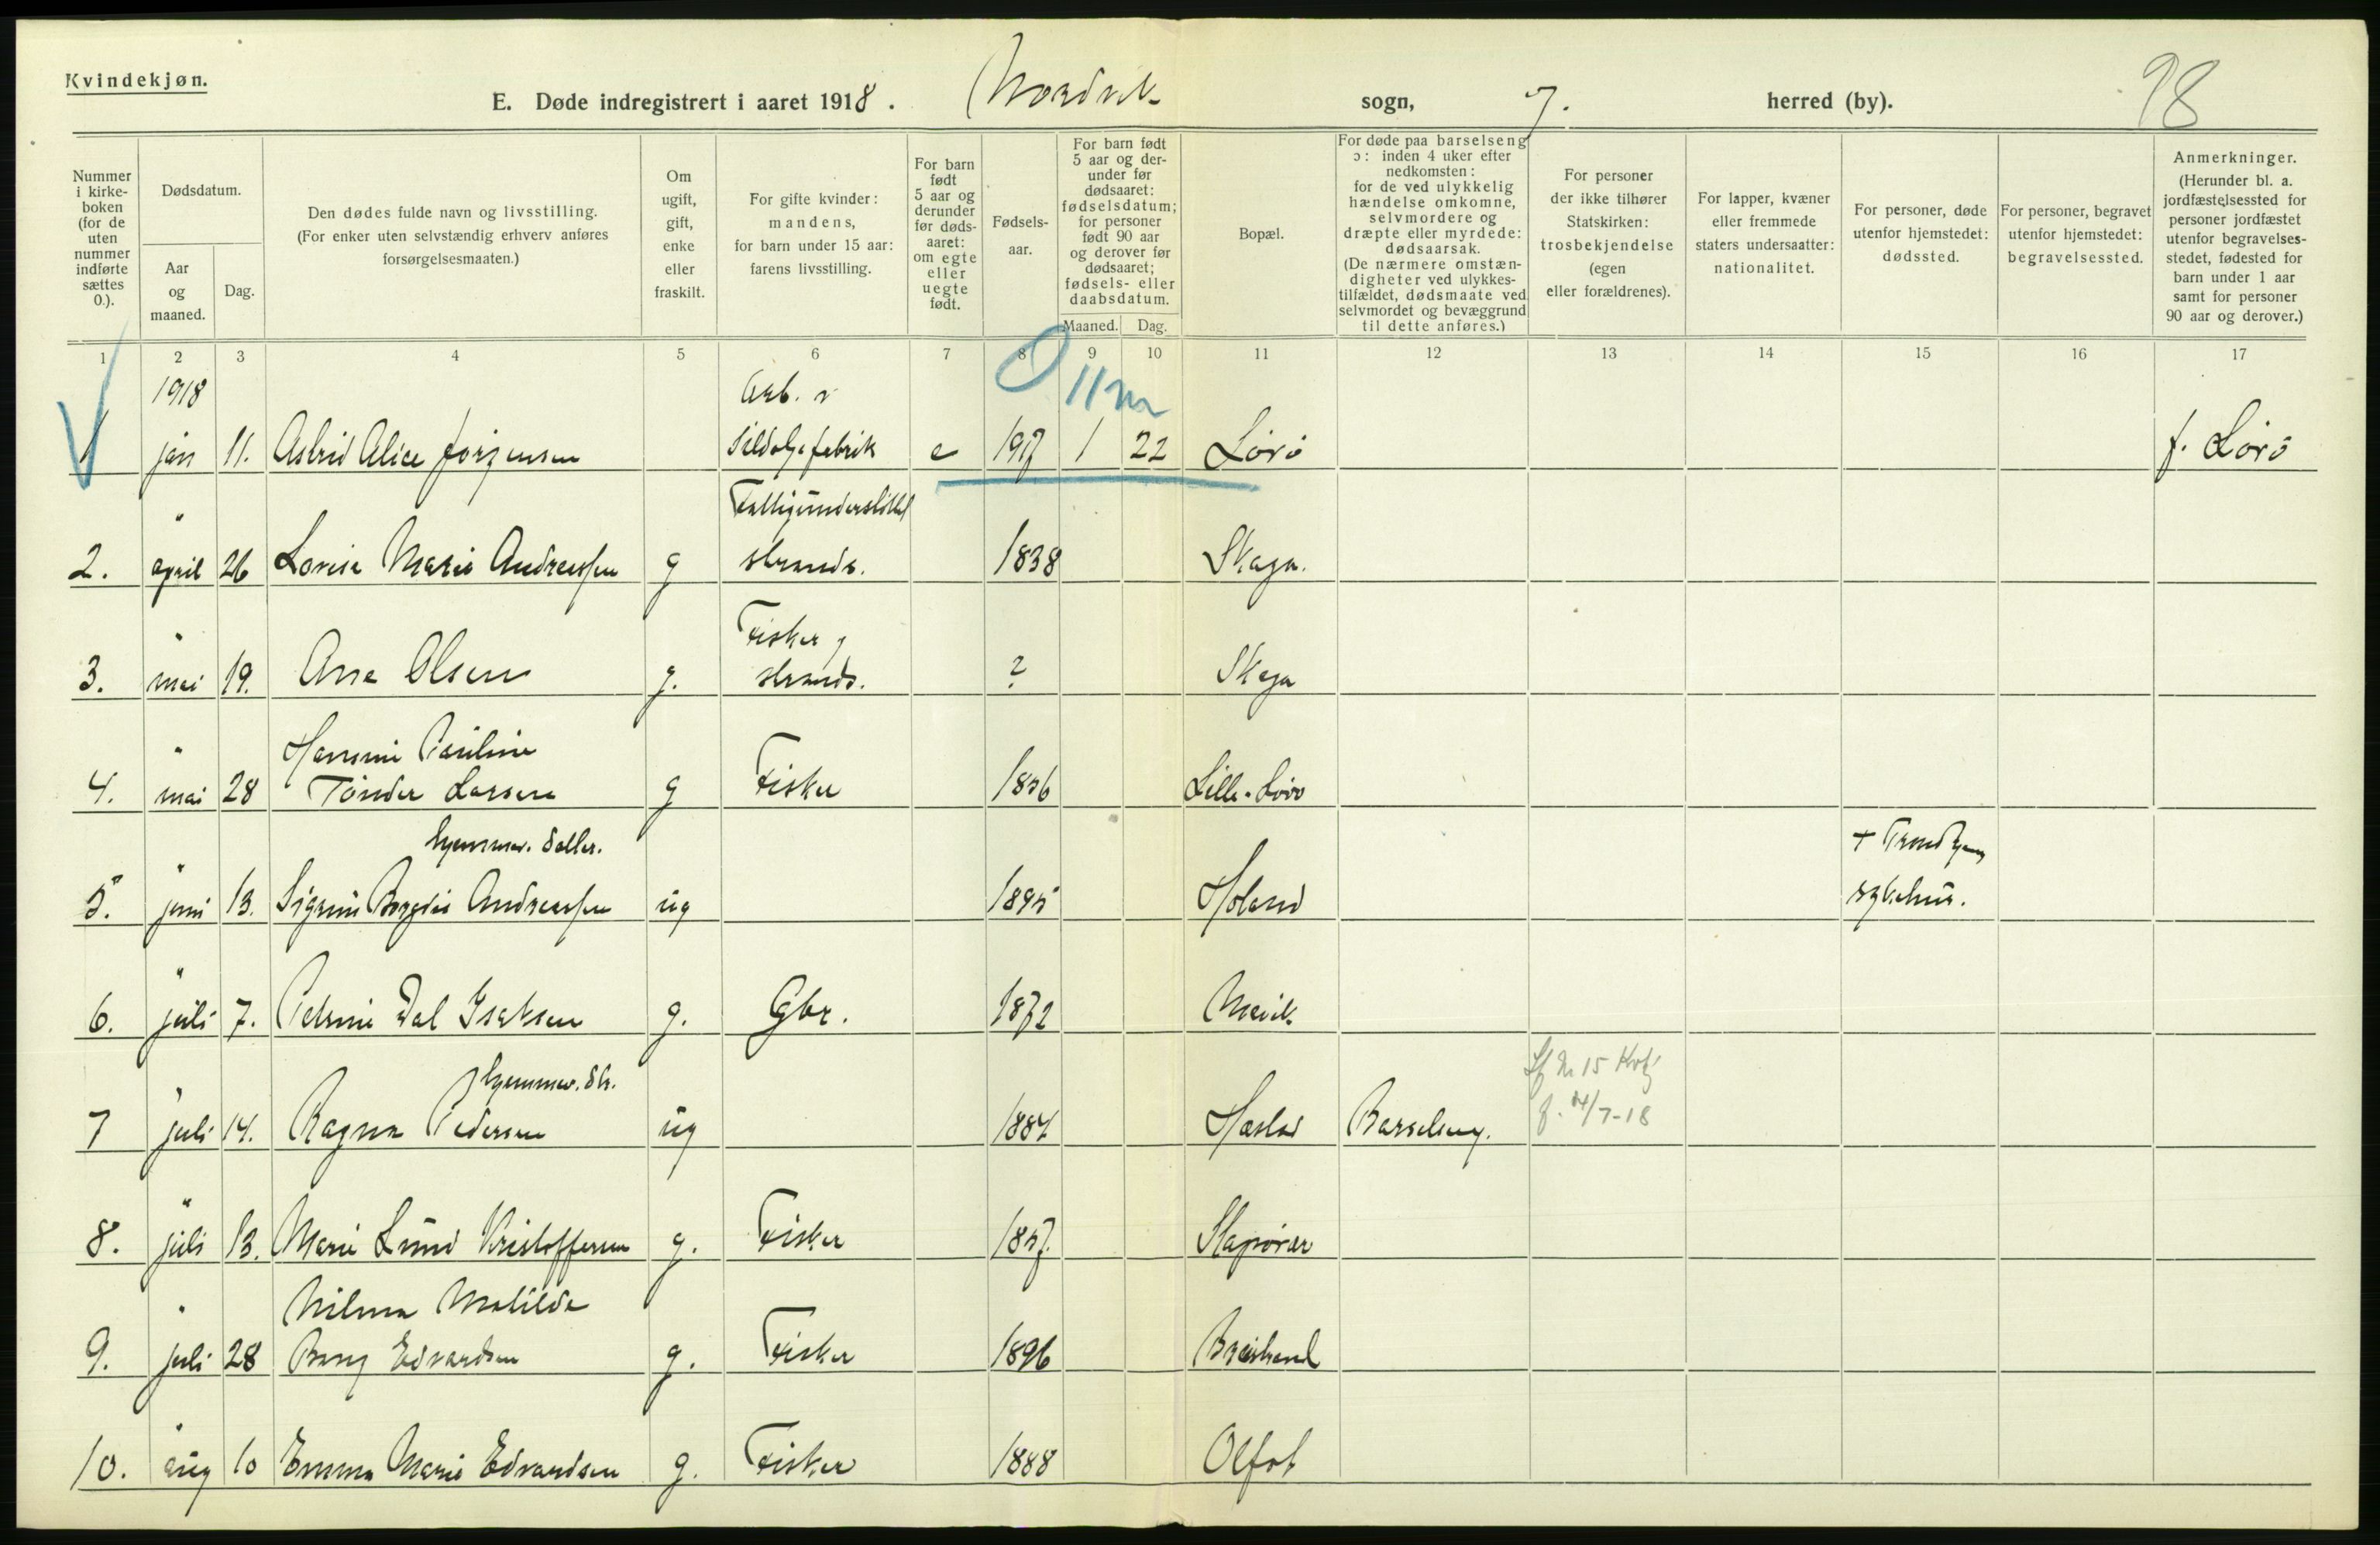 Kvindekjøn.
E. Døde indregistrert i aaret 1918. Nordvik sogn, herred (by). 98
Nummer i kirkeboken (for de uten nummer indførte sættes 0.).
Dødsdatum.
Aar og maaned.
Dag.
Den dødes fulde navn og livsstilling.
(For enker uten selvstændig erhverv anføres forsørgelsesmaaten.)
Om ugift, gift, enke eller fraskilt.
For gifte kvinder: mandens, for barn under 15 aar: farens livsstilling.
For barn født 5 aar og derunder før dødsaaret: om egte eller uegte født.
Fødselsaar.
For barn født 5 aar og derunder før dødsaaret: fødselsdatum; for personer født 90 aar og derover før dødsaaret; fødsels- eller daabsdatum.
Maaned. Dag.
Bopæl.
For døde paa barselseng ɔ: inden 4 uker efter nedkomsten: for de ved ulykkelig hændelse omkomne, selvmordere og dræpte eller myrdede: dødsaarsak.
(De nærmere omstændigheter ved ulykkestilfældet, dødsmaate ved selvmordet og bevæggrund til dette anføres.)
For personer der ikke tilhører Statskirken: trosbekjendelse (egen eller forældrenes).
For lapper, kvæner eller fremmede staters undersaatter: nationalitet.
For personer, døde utenfor hjemstedet: dødssted.
For personer, begravet utenfor hjemstedet: begravelsessted.
Anmerkninger.
(Herunder bl. a. jordfæstelsessted for personer jordfæstet utenfor begravelsesstedet, fødested for barn under 1 aar samt for personer 90 aar og derover.)
1 2 3 4 5 6 7 8 9 10 11 12 13 14 15 16 17
1918 Arb. v 0 11 m
1 jan 11. Astrid Alice Jørgensen Sildoljefabrik e 1917 1 22 Lørø f. Lørø
" Fattigunderstøttet
2. april 26 Lovise Marie Andreassen g strands. 1838 Skaga.
" Fisker,
3. mai 19. Ane Olsen g. strands. ? Skaga
" Hansine Pauline
4. mai 28 Tønder Larsen g Fisker 1856 Lille-Lørø
hjemmev. datter. + Trondhjem
5. " juni 13. Sigrun Borgdis Andreassen ug 1895 Høland sykehus.
6. " juli 7. Petrine Dal Isaksen g. Gbr. 1872
hjemmev. dtr. 15
7 " juli 14. Ragna Pedersen ug 1887 Barselseng. f. 4/7-18
8. " juli 13. Marie Lund Kristoffersen g. Fisker 1857. Slapøvær
" Milma Matilde
9. juli 28 Berg Edvardsen g. Fisker 1896 Breistrand
10. " aug 10 Emma Marie Edvardsen g. Fisker 1888 Olfot